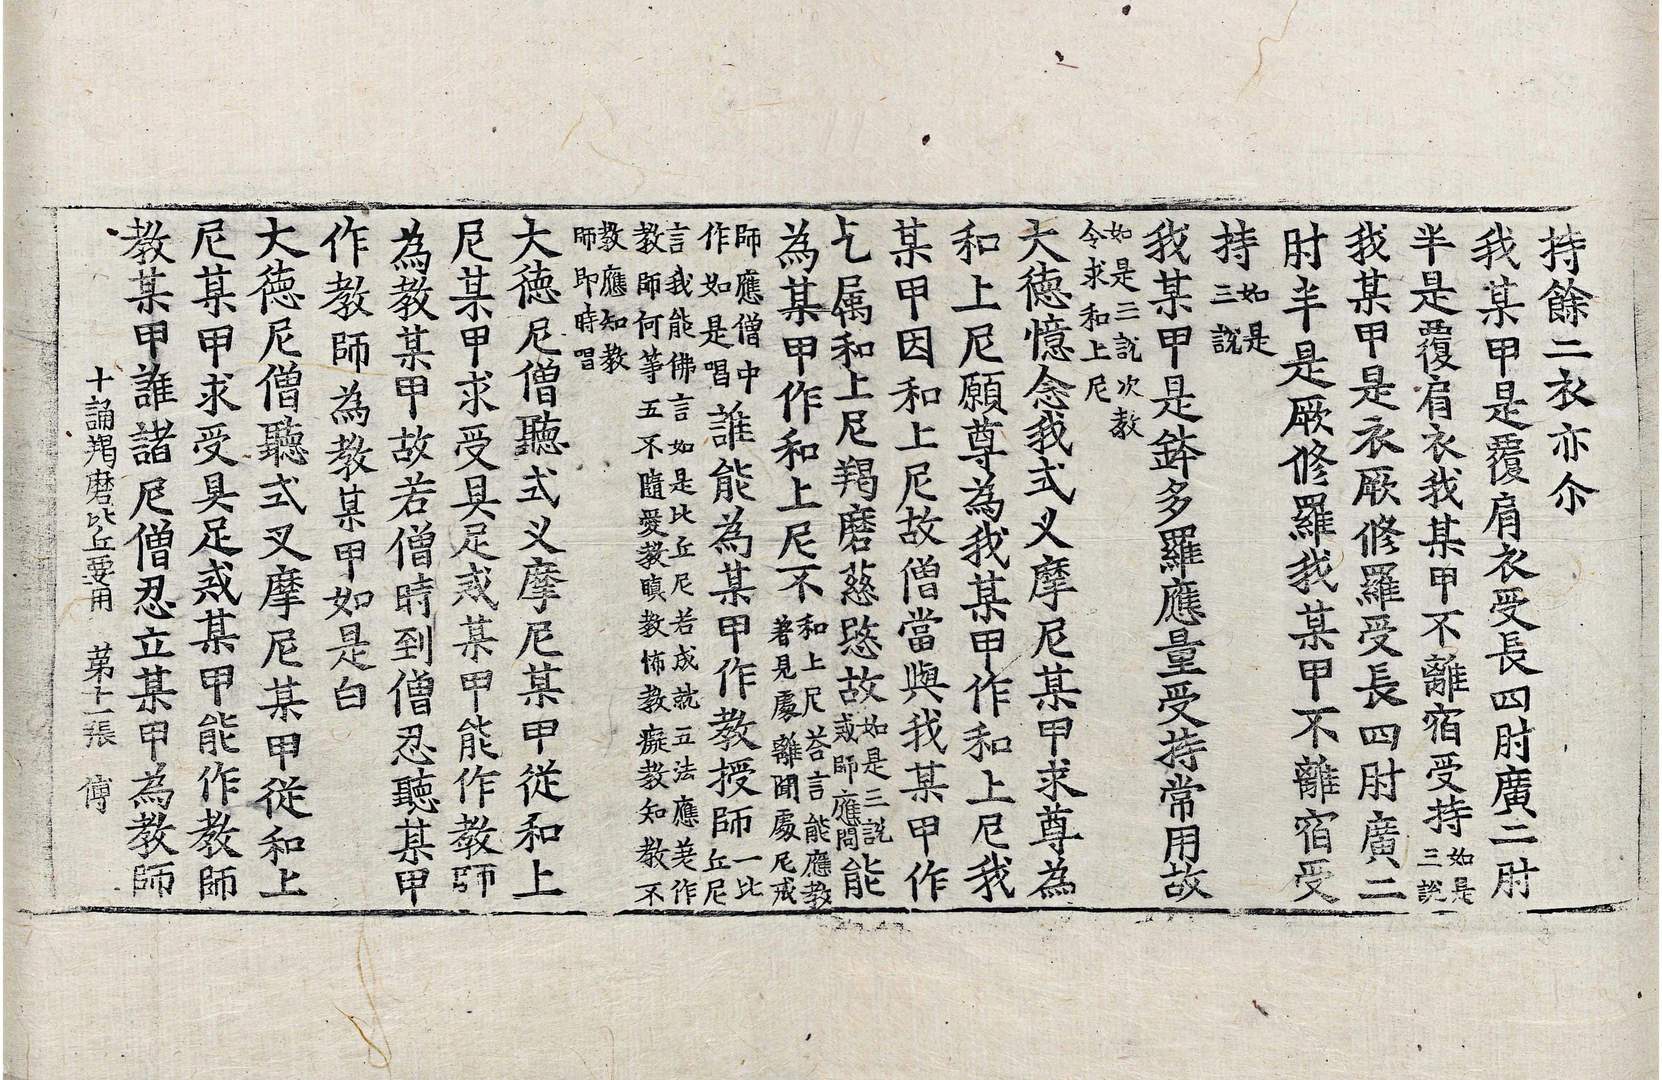 持餘二衣亦尒
我某甲是覆肩衣受長四肘廣二肘
半是覆肩衣我某甲不離宿受持如是三說
我某甲是衣厥修羅受長四肘廣二
肘半是厥修羅我某甲不離宿受
持如是三說
我某甲是鉢多羅應量受持常用故
如是三說次教令求和上尼
大德憶念我式叉摩尼某甲求尊為
和上尼願尊為我某甲作和上尼我
某甲因和上尼故僧當與我某甲作
乞属和上尼羯磨慈愍故如是三說或師應問能
為某甲作和上尼不和上尼荅言能應教著見處離聞處尼戒
師應僧中作如是唱誰能為某甲作教授師一比丘尼
言我能佛言如是比丘尼若成就五法應羌作
教師何等五不隨愛教瞋教怖教癡教知教不
教應知教師即時唱
大德尼僧聽式叉摩尼某甲從和上
尼某甲求受具足或某甲能作教師
為教某甲故若僧時到僧忍聽某甲
作教師為教某甲如是白
大德尼僧聽式叉摩尼某甲從和上
尼某甲求受具足或某甲能作教師
教某甲誰諸尼僧忍立某甲為教師
十誦羯磨比丘要用 苐十一張 傅